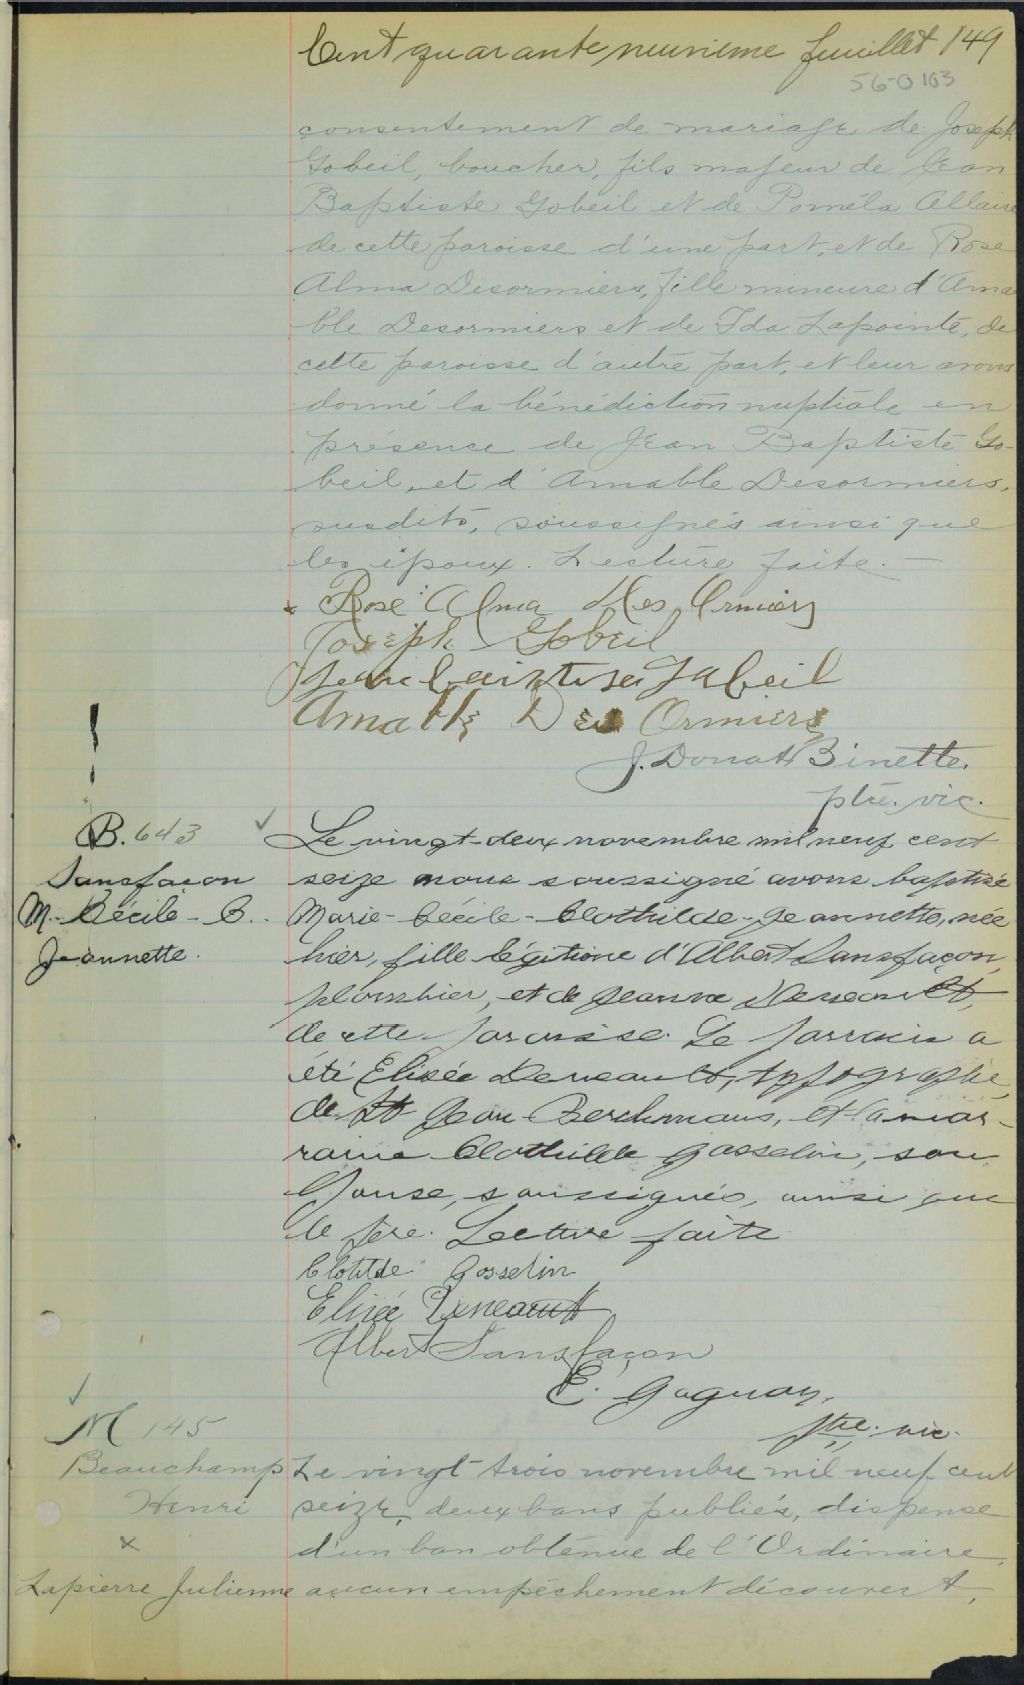 Cent quarante neuvième feuillet 149
56-0103
consentement de mariage de Joseph
Gobeil, boucher, fils majeur de Jean
Baptiste Gobeil et de Poméla Allaire
de cette paroisse d'une part, et de Rose
Alma Desormiers, fille mineure d'Ama
ble Desormiers et de Ida Lapointe, de
cette paroisse d'autre part, et leur avons
donné la bénédiction nuptiale en
présence de Jean Baptiste Go-
beil, et d'Amable Desormiers,
susdits, soussignés ainsi que
les époux. Lecture faite. —
Rose Alma Des Ormiers
Joseph Gobeil
Amable Des Ormiers
J. Donat Binette.
ptre. vic.
B. 643
Sansfaçon
M.- Cécile - C.
Jeannette.
Le vingt-deux novembre mil neuf cent
seize nous soussigné avons baptisé
Marie-Cécile-Clothilde-Jeannette, née
hier, fille légitime d'Albert Sansfaçon,
plombier, et de Jeanne Deneault,
de cette paroisse. Le parrain a
été Elisée Deneault, typographe,
de St Jean Berchmans, et la mar-
raine Clothilde Gosselin, son
épouse, soussignés, ainsi que
le père. Lecture faite
Clotilde Gosselin
Elisée Deneault
Albert Sansfaçon
E. Gagnon,
ptre. vic.
M 145
Beauchamp
Henri
x
Lapierre Julienne
Le vingt-trois novembre mil neuf cent
seize, deux bans publiés, dispense
d'un ban obtenue de l'Ordinaire,
aucun empêchement découvert,